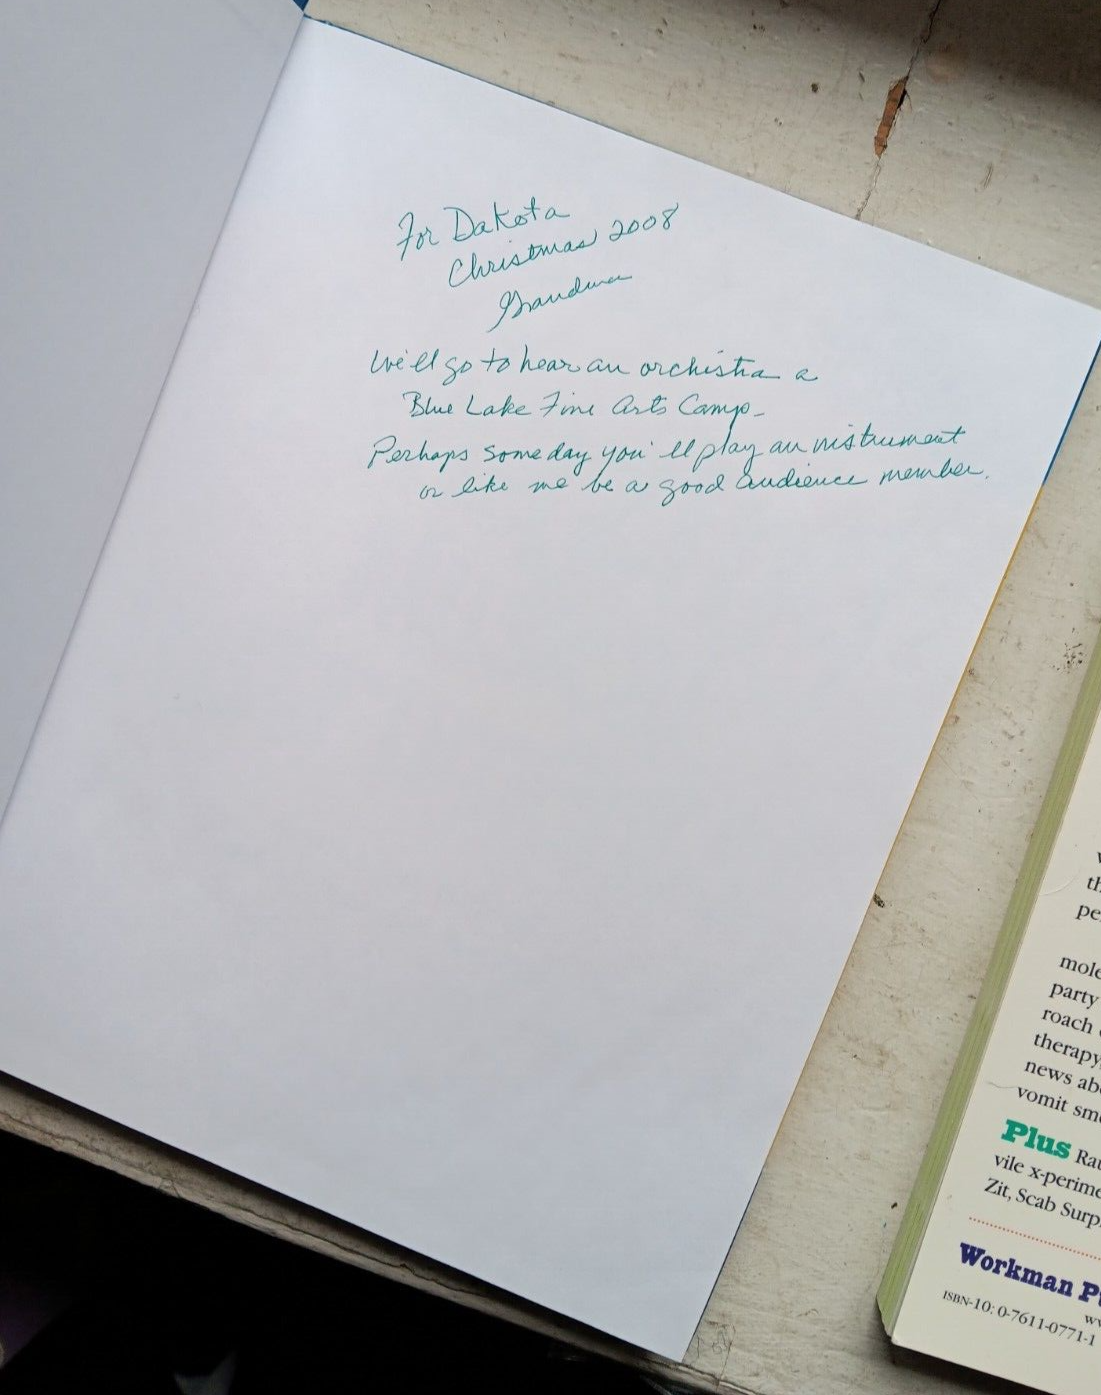 For Dakota
Christmas 2008
Grandma
We'll go to hear an orchistra a
Blue Lake Fine Arts Camp-
Perhaps someday you'll play an instrument
or like me be a good audience member.
th
pe
mole
party
roach
therapy,
news ab
vomit sm
Plus Ra
vile x-perime
Zit, Scab Surp
Workman P
ISBN-10: 0-7611-0771-1